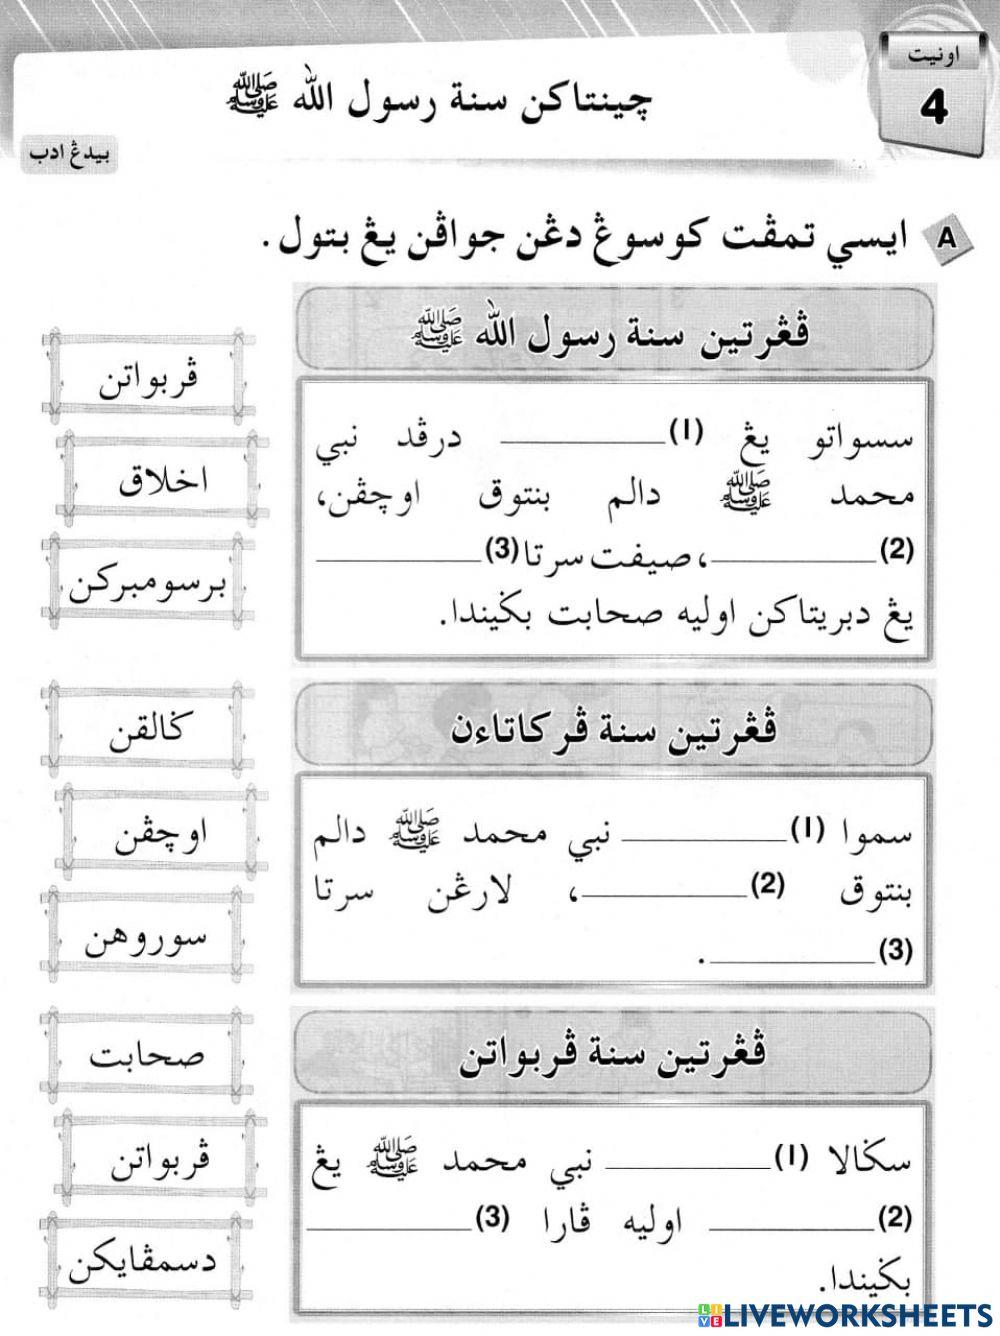 اونيت
4
چينتاكن سنة رسول الله ﷺ
بيدڠ ادب
A ايسي تمڤت كوسوڠ دڠن جواڤن يڠ بتول.
ڤڠرتين سنة رسول الله ﷺ
سسواتو يڠ (1) ____________ درڤد نبي
محمد ﷺ دالم بنتوق اوچڤن،
(2) ____________، صيفت سرتا (3) ____________
يڠ دبريتاكن اوليه صحابت بڬيندا.
ڤربواتن
اخلاق
برسومبركن
ڤڠرتين سنة ڤركاتاءن
سموا (1) ____________ نبي محمد ﷺ دالم
بنتوق (2) ____________، لارڠن سرتا
(3) ____________.
ڬالقن
اوچڤن
سوروهن
ڤڠرتين سنة ڤربواتن
سڬالا (1) ____________ نبي محمد ﷺ يڠ
(2) ____________ اوليه ڤارا (3) ____________
بڬيندا.
صحابت
ڤربواتن
دسمڤايكن
LIVEWORKSHEETS